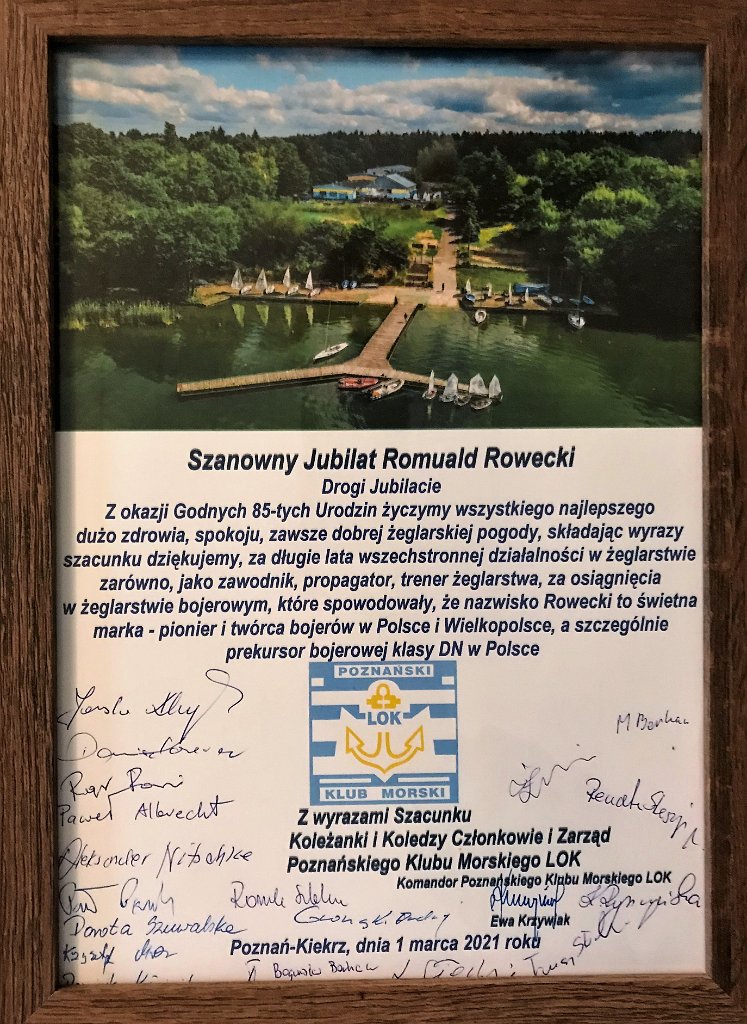 Szanowny Jubilat Romuald Rowecki
Drogi Jubilacie
Z okazji Godnych 85-tych Urodzin życzymy wszystkiego najlepszego
dużo zdrowia, spokoju, zawsze dobrej żeglarskiej pogody, składając wyrazy
szacunku dziękujemy, za długie lata wszechstronnej działalności w żeglarstwie
zarówno, jako zawodnik, propagator, trener żeglarstwa, za osiągnięcia
w żeglarstwie bojerowym, które spowodowały, że nazwisko Rowecki to świetna
marka - pionier i twórca bojerów w Polsce i Wielkopolsce, a szczególnie
prekursor bojerowej klasy DN w Polsce
POZNAŃSKI
LOK
KLUB MORSKI
Paweł Albrecht
Aleksander Nitschke
Z wyrazami Szacunku
Koleżanki i Koledzy Członkowie i Zarząd
Poznańskiego Klubu Morskiego LOK
Komandor Poznańskiego Klubu Morskiego LOK
Ewa Krzywiak
Dorota
Poznań-Kiekrz, dnia 1 marca 2021 roku